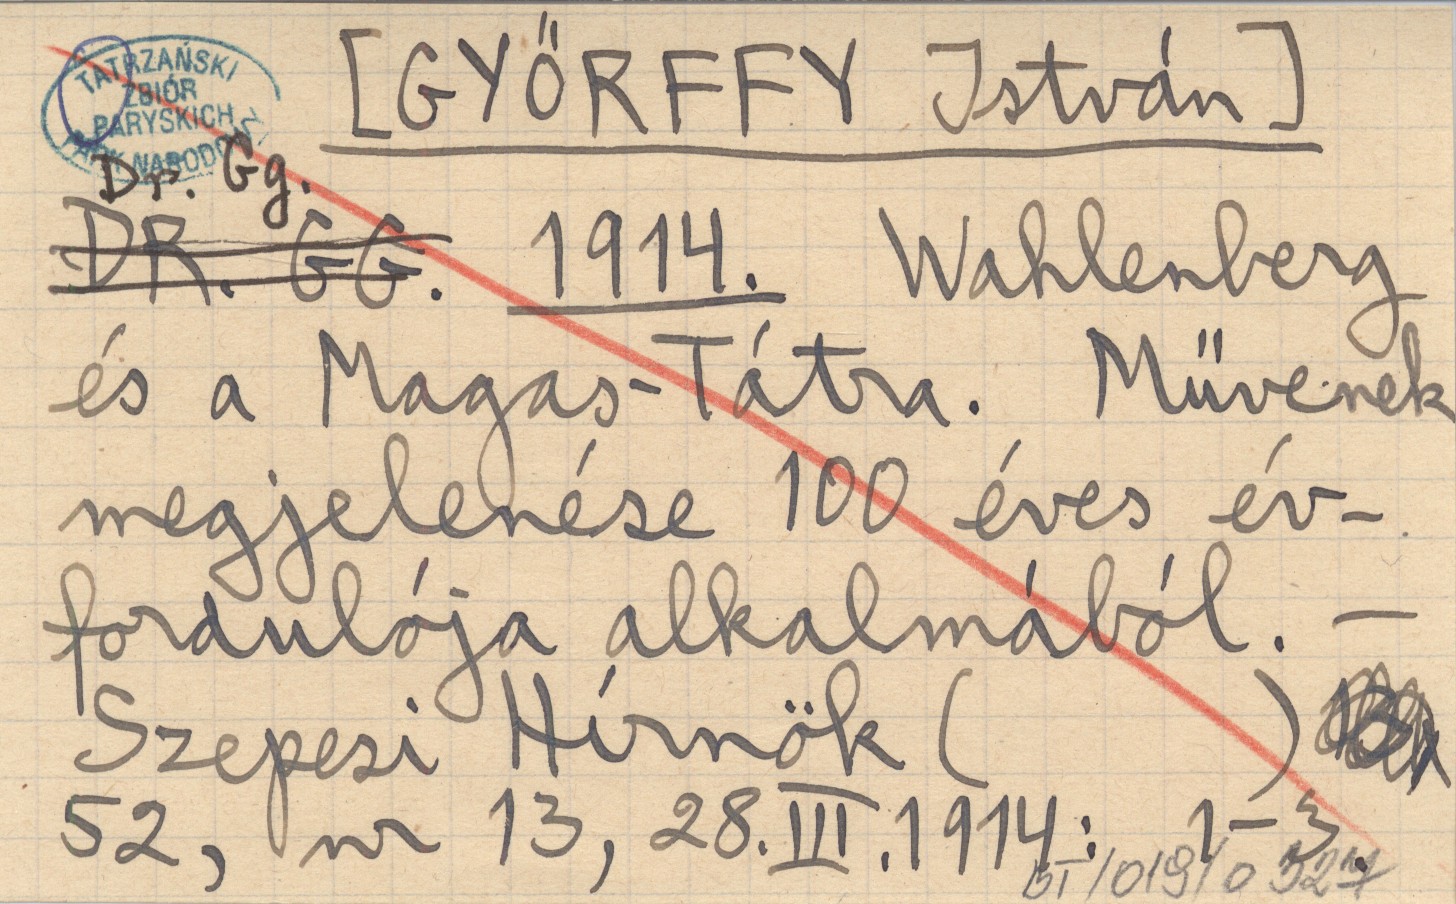 TATRZAŃSKI
ZBIÓR
PARYSKICH
PARK NARODOWY
[GYŐRFFY István]
Dr. Gg.
DR. GG. 1914. Wahlenberg
és a Magas-Tátra. Művének
megjelenése 100 éves év-
fordulója alkalmából. —
Szepesi Hírnök ( )
52, nr 13, 28.III.1914: 1-3.
BT/019/0 327